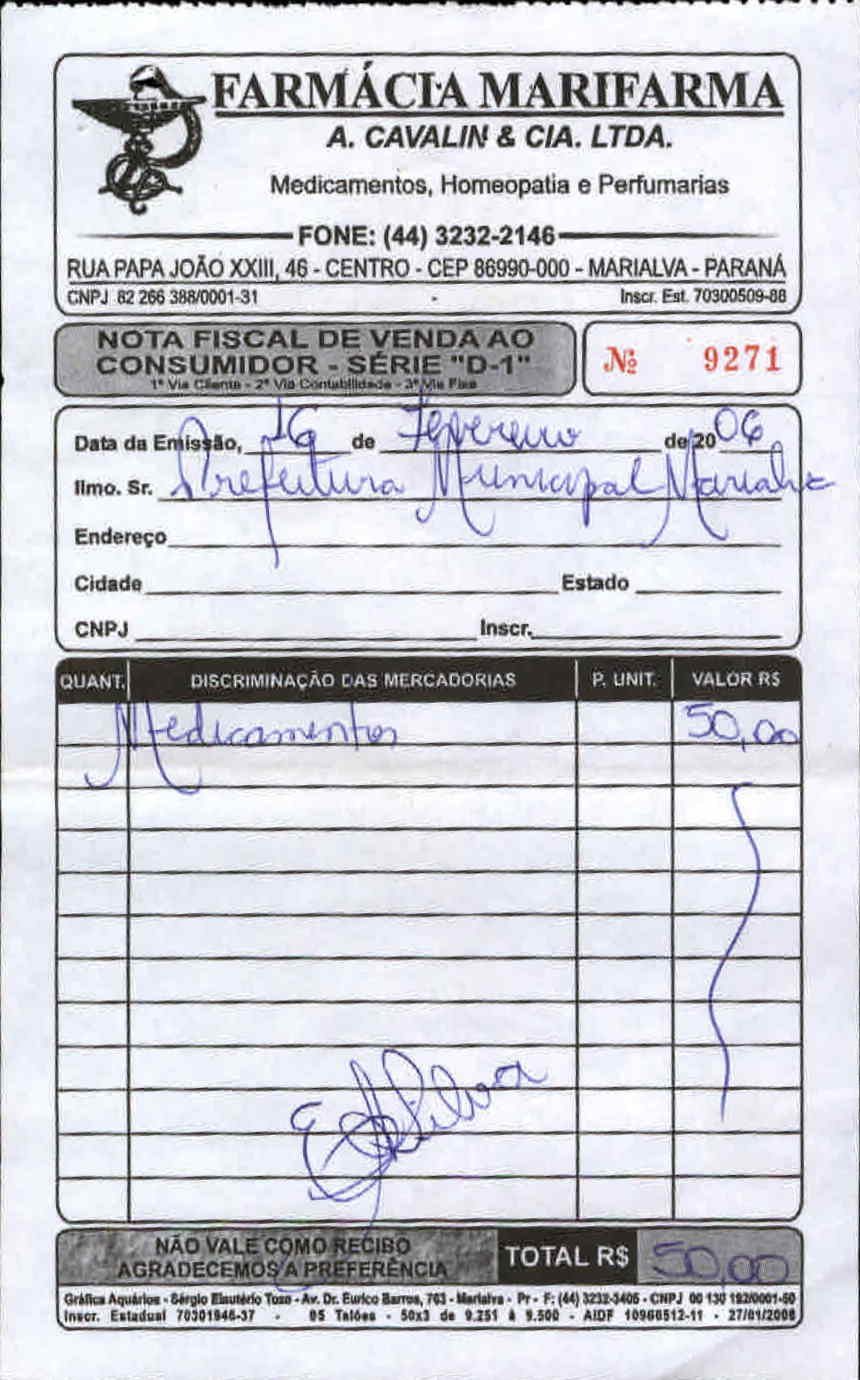 FARMÁCIA MARIFARMA
A. CAVALIN & CIA. LTDA.
Medicamentos, Homeopatia e Perfumarias
FONE: (44) 3232-2146
RUA PAPA JOÃO XXIII, 46 - CENTRO - CEP 86990-000 - MARIALVA - PARANÁ
CNPJ 82 266 388/0001-31 Inscr. Est. 70300509-88
NOTA FISCAL DE VENDA AO
CONSUMIDOR - SÉRIE "D-1"
1ª Via Cliente - 2ª Via Contabilidade - 3ª Via Fixa
Nº 9271
Data da Emissão, 16 de Fevereiro de 2006
Ilmo. Sr. Prefeitura Municipal Marialva
Endereço
Cidade Estado
CNPJ Inscr.
QUANT. DISCRIMINAÇÃO DAS MERCADORIAS P. UNIT. VALOR R$
Medicamentos 50,00
Silva
NÃO VALE COMO RECIBO
AGRADECEMOS A PREFERÊNCIA
TOTAL R$ 50,00
Gráfica Aquários - Sérgio Eleutério Tozo - Av. Dr. Eurico Barros, 763 - Marialva - Pr - F: (44) 3232-3405 - CNPJ 00 130 192/0001-60
Inscr. Estadual 70301946-37 - 05 Talões - 50x3 de 9.251 à 9.500 - AIDF 10960512-11 - 27/01/2006